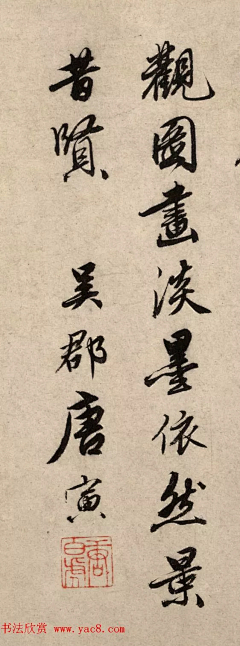 觀圖畫淡墨依然景
昔賢 吳郡唐寅
唐伯虎
书法欣赏 www.yac8.com